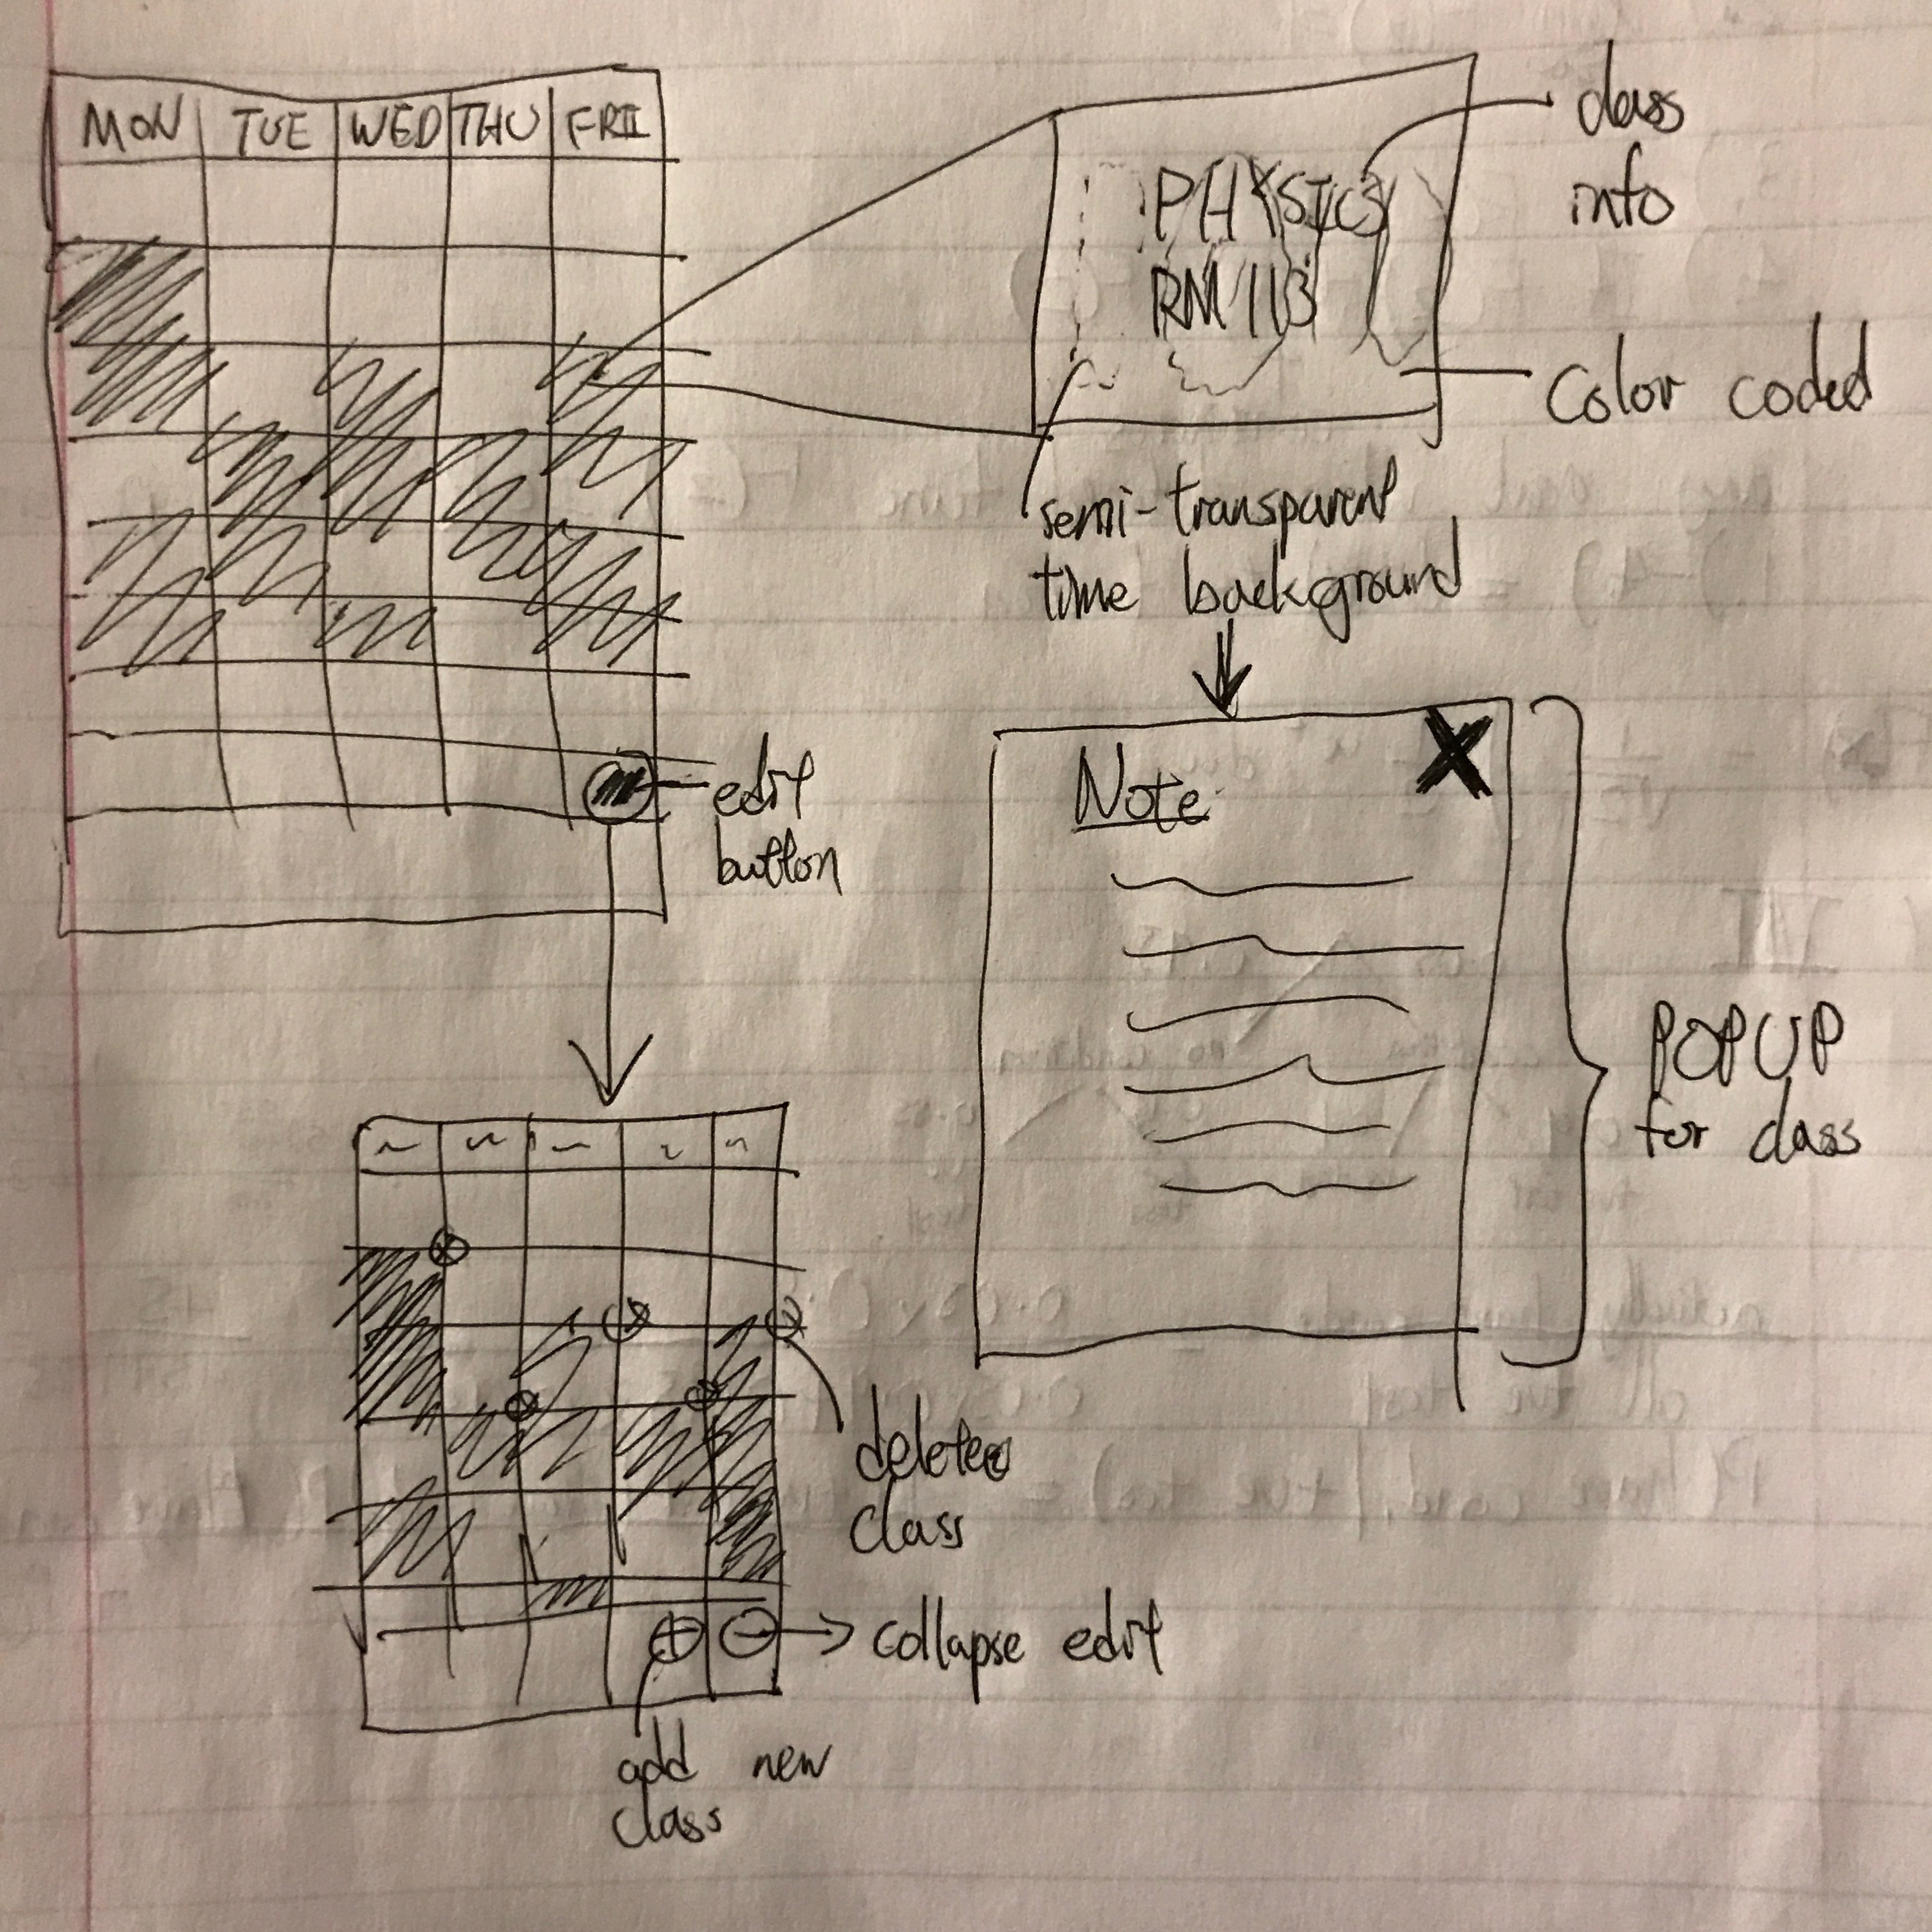 MON TUE WED THU FRI
class
info
PHYSICS
RM 113
color coded
semi-transparent
time background
edit
button
Note
POPUP
for class
delete
class
collapse edit
add new
class